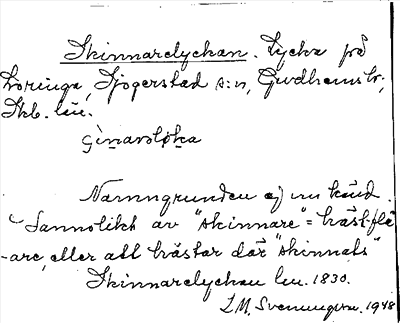 Skinnarelyckan. Lycka på
Loringa, Sjogerstad s:n, Gudhems hr,
Skb. län.
Namngrunden ej nu känd.
Sannolikt av "skinnare" = hästflå
-are, eller att hästar där "skinnats"
Skinnarelyckan len. 1830.
L.M. Svenungson. 1948